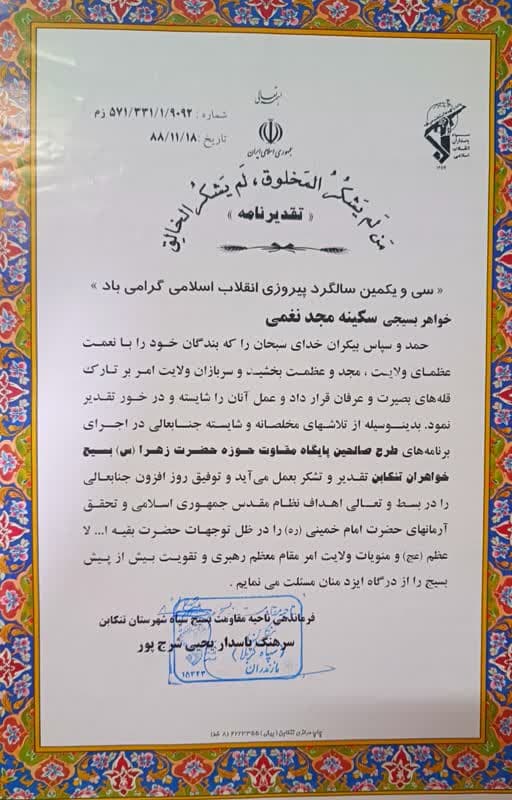 بسمه تعالی
شماره : ۵۷۱/۳۳۱/۱/۹۰۹۲ زم
تاریخ : ۸۸/۱۱/۱۸
جمهوری اسلامی ایران
سپاه
پاسداران
انقلاب
اسلامی
مَن لَم یَشکُرُ المَخلوق، لَم یَشکُرُ الخالِق
« تقدیرنامه »
« سی و یکمین سالگرد پیروزی انقلاب اسلامی گرامی باد »
خواهر بسیجی سکینه مجد نغمی
حمد و سپاس بیکران خدای سبحان را که بندگان خود را با نعمت
عظمای ولایت ، مجد و عظمت بخشید و سربازان ولایت امر بر تارک
قله‌های بصیرت و عرفان قرار داد و عمل آنان را شایسته و در خور تقدیر
نمود. بدینوسیله از تلاشهای مخلصانه و شایسته جنابعالی در اجرای
برنامه‌های طرح صالحین پایگاه مقاوت حوزه حضرت زهرا (س) بسیج
خواهران تنکابن تقدیر و تشکر بعمل می‌آید و توفیق روز افزون جنابعالی
را در بسط و تعالی اهداف نظام مقدس جمهوری اسلامی و تحقق
آرمانهای حضرت امام خمینی (ره) را در ظل توجهات حضرت بقیه ا... لا
عظم (عج) و منویات ولایت امر مقام معظم رهبری و تقویت بیش از پیش
بسیج را از درگاه ایزد منان مسئلت می نمایم .
فرماندهی ناحیه مقاومت بسیج سپاه شهرستان تنکابن
سرهنگ پاسدار یحیی شرج پور
سپاه کربلا
مازندران
۱۸۳۲۳